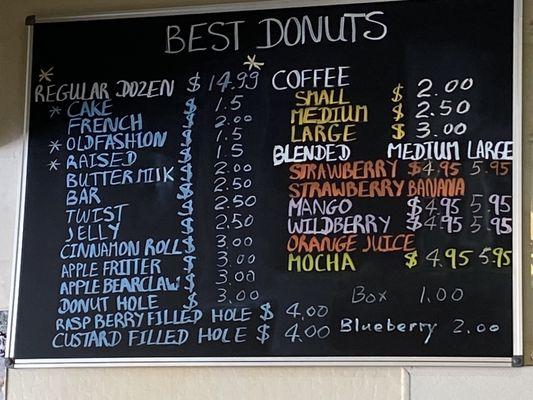 BEST DONUTS
* REGULAR DOZEN $14.99
* CAKE $ 1.5
FRENCH $ 2.00
* OLDFASHION $ 1.5
* RAISED $ 1.5
BUTTERMILK $ 2.00
BAR $ 2.50
TWIST $ 2.50
JELLY $ 2.50
CINNAMON ROLL $ 3.00
APPLE FRITTER $ 3.00
APPLE BEARCLAW $ 3.00
DONUT HOLE $ 3.00
RASPBERRY FILLED HOLE $ 4.00
CUSTARD FILLED HOLE $ 4.00
COFFEE
SMALL $ 2.00
MEDIUM $ 2.50
LARGE $ 3.00
BLENDED MEDIUM LARGE
STRAWBERRY $4.95 5.95
STRAWBERRY BANANA
MANGO $4.95 5.95
WILDBERRY $4.95 5.95
ORANGE JUICE
MOCHA $4.95 5.95
Box 1.00
Blueberry 2.00